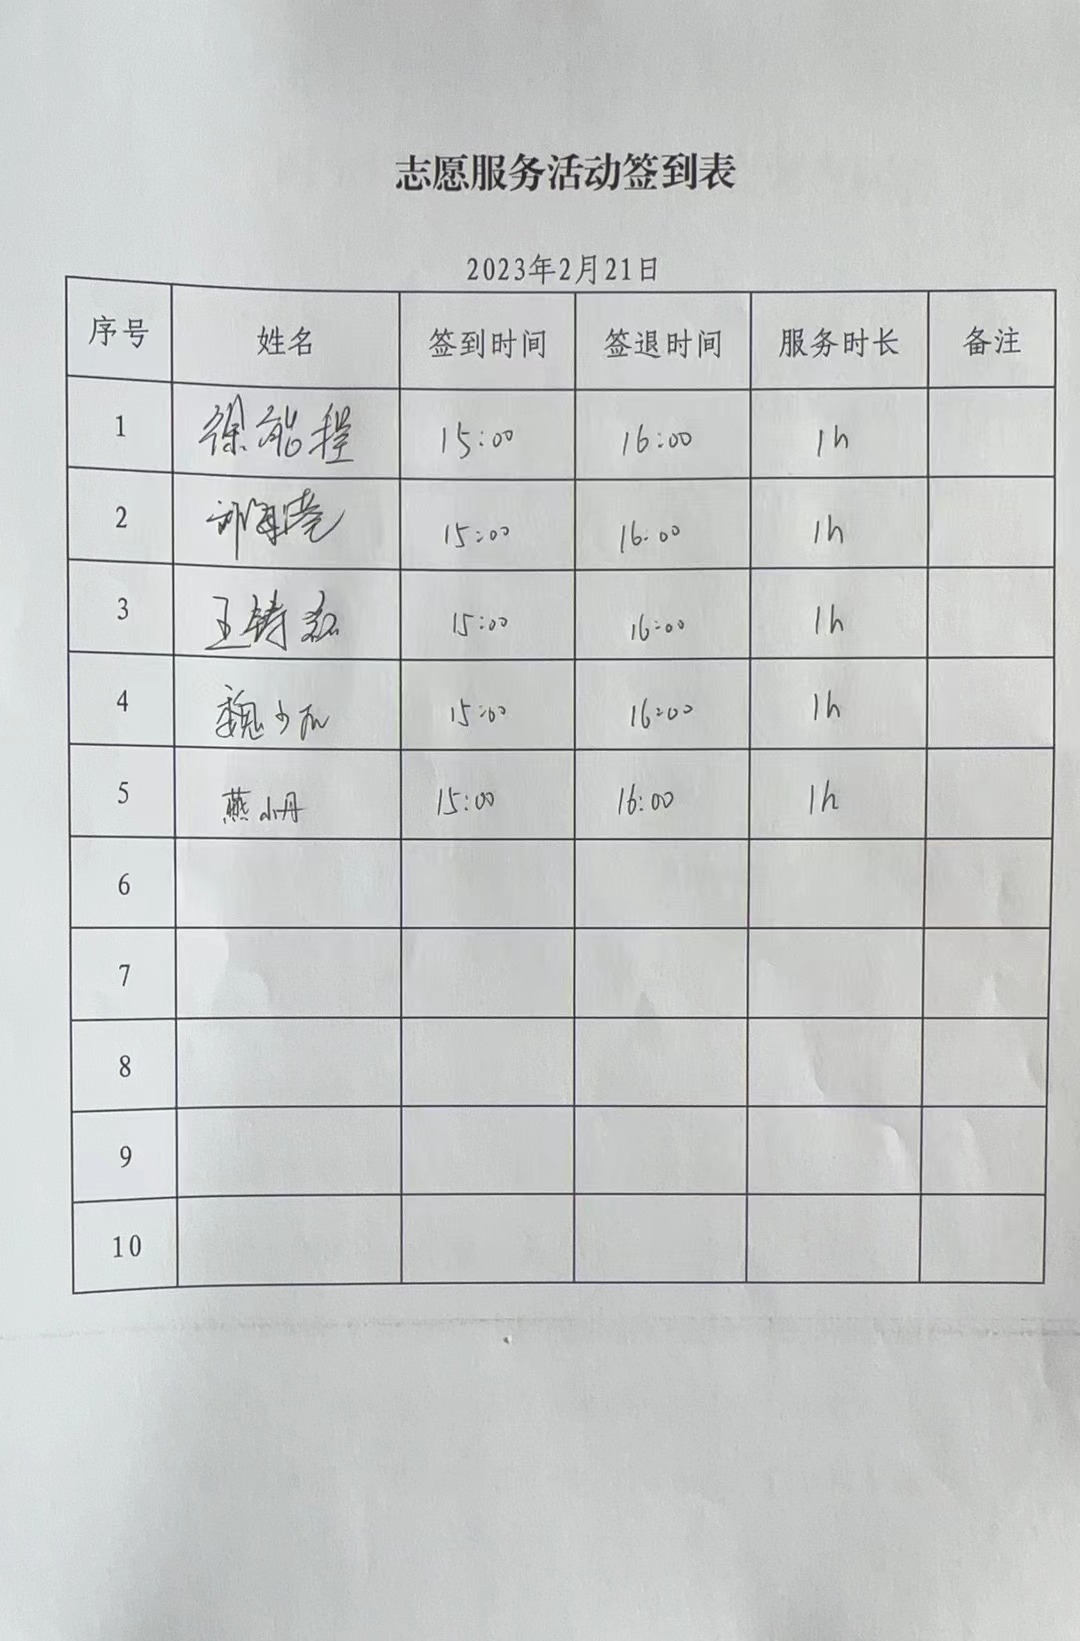 志愿服务活动签到表
2023年2月21日
序号 姓名 签到时间 签退时间 服务时长 备注
1 徐能程 15:00 16:00 1h
2 15:00 16:00 1h
3 王铸 15:00 16:00 1h
4 魏少 15:00 16:00 1h
5 燕小丹 15:00 16:00 1h
6
7
8
9
10